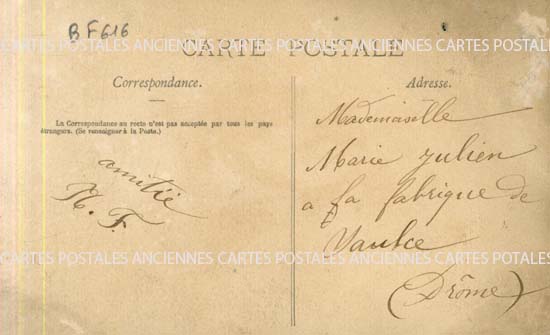 BF616
CARTE POSTALE
ANCIENNES CARTES POSTALES ANCIENNES CARTES POSTALES
Correspondance.
La Correspondance au recto n'est pas acceptée par tous les pays
étrangers. (Se renseigner à la Poste.)
amitié
F.
Adresse.
Mademoiselle
Marie Julien
a la fabrique de
(Drôme)
CARTES POSTALES ANCIENNES CARTES POSTALES ANCIENNES CARTES POSTALES